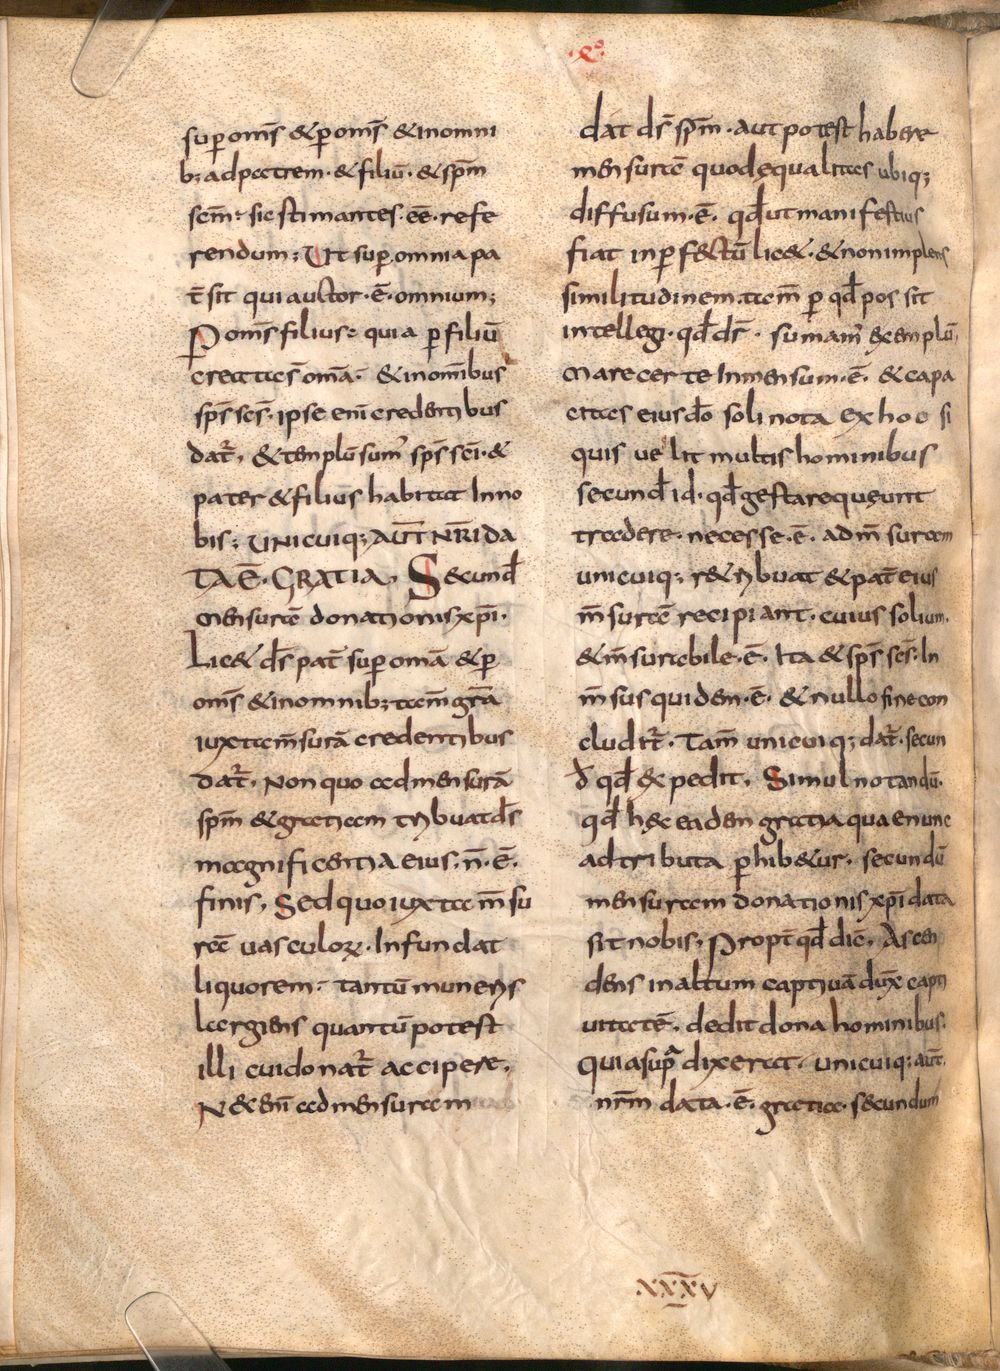 ·x͞o·
sup̱ om̄s & p̱ om̄s & in omni
b; ad patrem · & filiū · & sp̄m
sc̄m · sic estimantes · eē · refe
rendum; Ut sup̱ omnia pa
t̄ sit qui auctor · ē · omnium;
P̱ om̄s filius : quia p̱ filiū
creata s̄ om̄a · & in om̄ibus
sp̄s sc̄s · ipse eni̅ credentibus
dat̄ , & templū sum̄ sp̄s sc̄i · &
pater & filius habitat In no
bis; UNICUIQ; AUT̄ NR̄I DA
TA Ē · GRATIA , Secund̄
mensurā donationis xp̄i ·
Lic& d̄s pat̄ sup̱ om̄a & p̱
om̄s & in omnib; tam̄ gr̄a
iuxta m̄surā credentibus
dat̄ , Non quo ad mensurā
sp̄m & gratiam tribuat d̄s
magnificentia eius · n̄ · ē ·
finis , Sed quo iuxta m̄su
rā vasculoꝝ · Infundat
liquorem · tantū muneris
largiens quantū potest
illi cui donat̄ accipere ,
N& eni̅ ad mensuram
dat d̄s sp̄m · aut potest habere
mensurā quod ęqualitas ubiq;
diffusum · ē · qd̄ ut manifestius
fiat inp̱f&ctū lic& · & non implens
similitudinem tam̄ p̱ qd̄ pos sit
intellegi · qd̄ d̄r · sumam̄ exemplū ,
Mare certe Inmensum · ē · & capa
citas eius d̄o soli nota ex hoc si
quis velit multis hominibus
secund̄ id · qd̄ gestare queunt
tradere · necesse · ē · ad m̄suram
unicuiq; r&ribuat & pat̄ eius
m̄suram recipiant · cuius solium ·
& m̄surabile · ē · Ita & sp̄s sc̄s · In
m̄sus quidem · ē · & nullo fine con
cludit̄ · Tam̄ unicuiq; dat̄ · secun
d̄ qd̄ expedit , Simul notandū ·
qd̄ hęc eadem gratia quae nunc
adtributa p̱hib&ur · secundū
mensuram donationis xp̄i data
sit nobis , Propt̄ qd̄ dic̄ , Ascen
dens in altum captivā dux̄ capti
vitatē , dedit dona hominibus ·
Quia supra dixerat · unicuiq; aut̄ ·
nr̄m data · ē · gratia · secundum
·XXXV